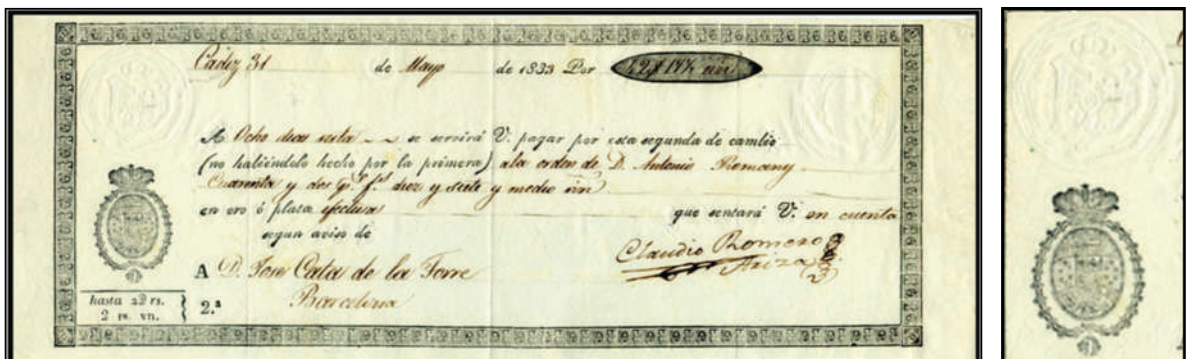 Cadiz 31 de Mayo de 1833 Por
A Ocho dias vista se servirá V. pagar por esta segunda de cambio
(no habiéndolo hecho por la primera) a la orden de D. Antonio Romany
Cuarenta y dos diez y siete y medio
en oro ó plata efectiva que sentará V. en cuenta
segun aviso de
Claudio Romero
Ariza
A D. Jose Cata de la Torre
Barcelona
hasta rs.
2 rs. vn.
2.ª